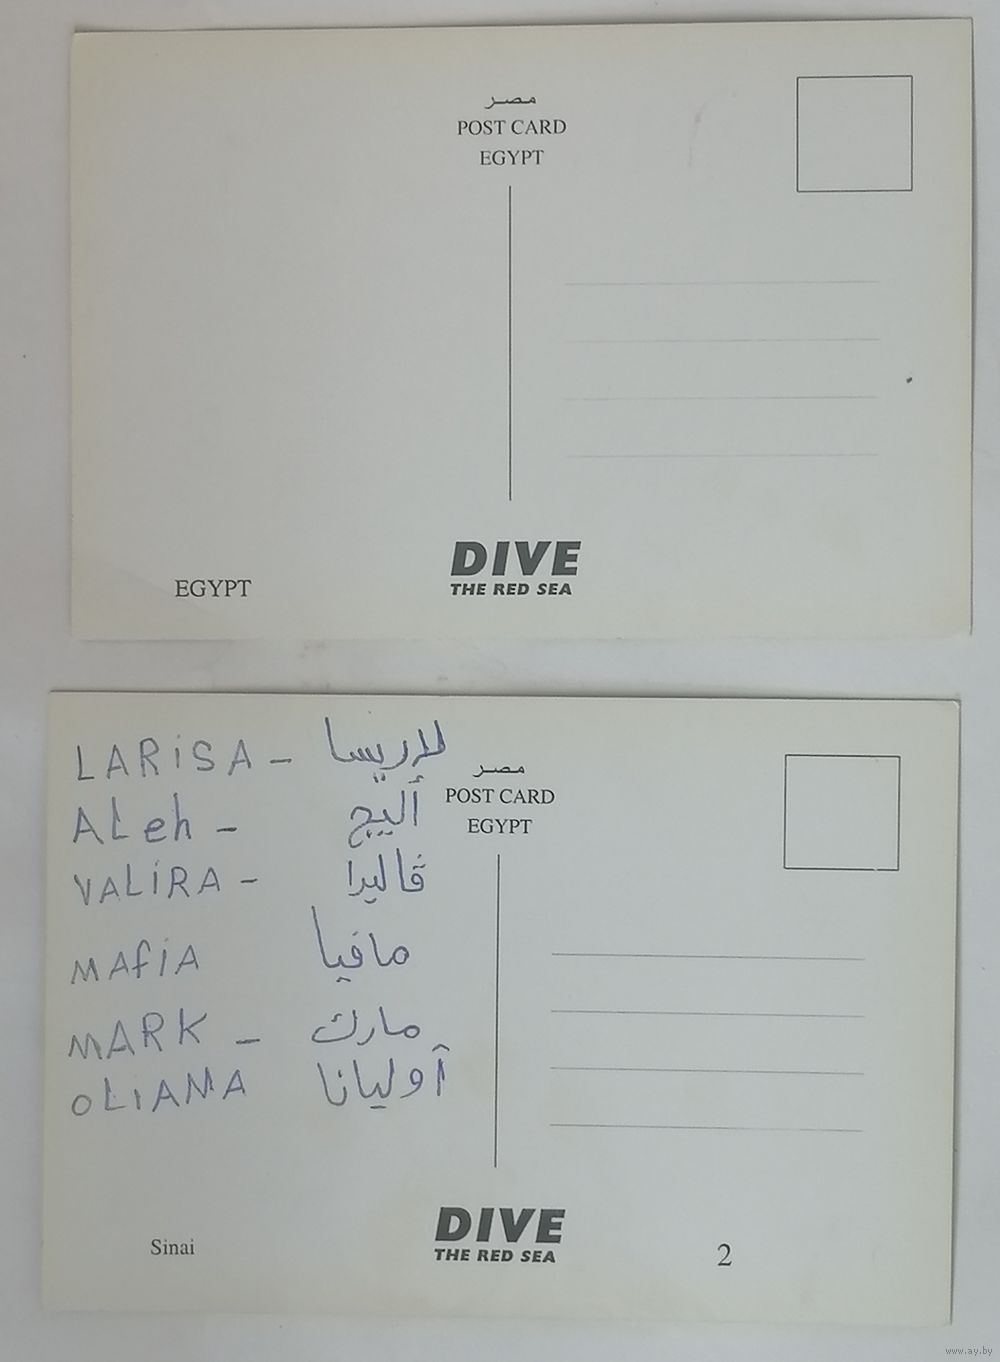 مصر
POST CARD
EGYPT
EGYPT
DIVE
THE RED SEA
LARiSA - لاريسا
ALeh - أليج
VALiRA - ڤاليرا
MAfiA مافيا
MARK - مارك
OLiANA آوليانا
مصر
POST CARD
EGYPT
Sinai
DIVE
THE RED SEA
2
www.ay.by